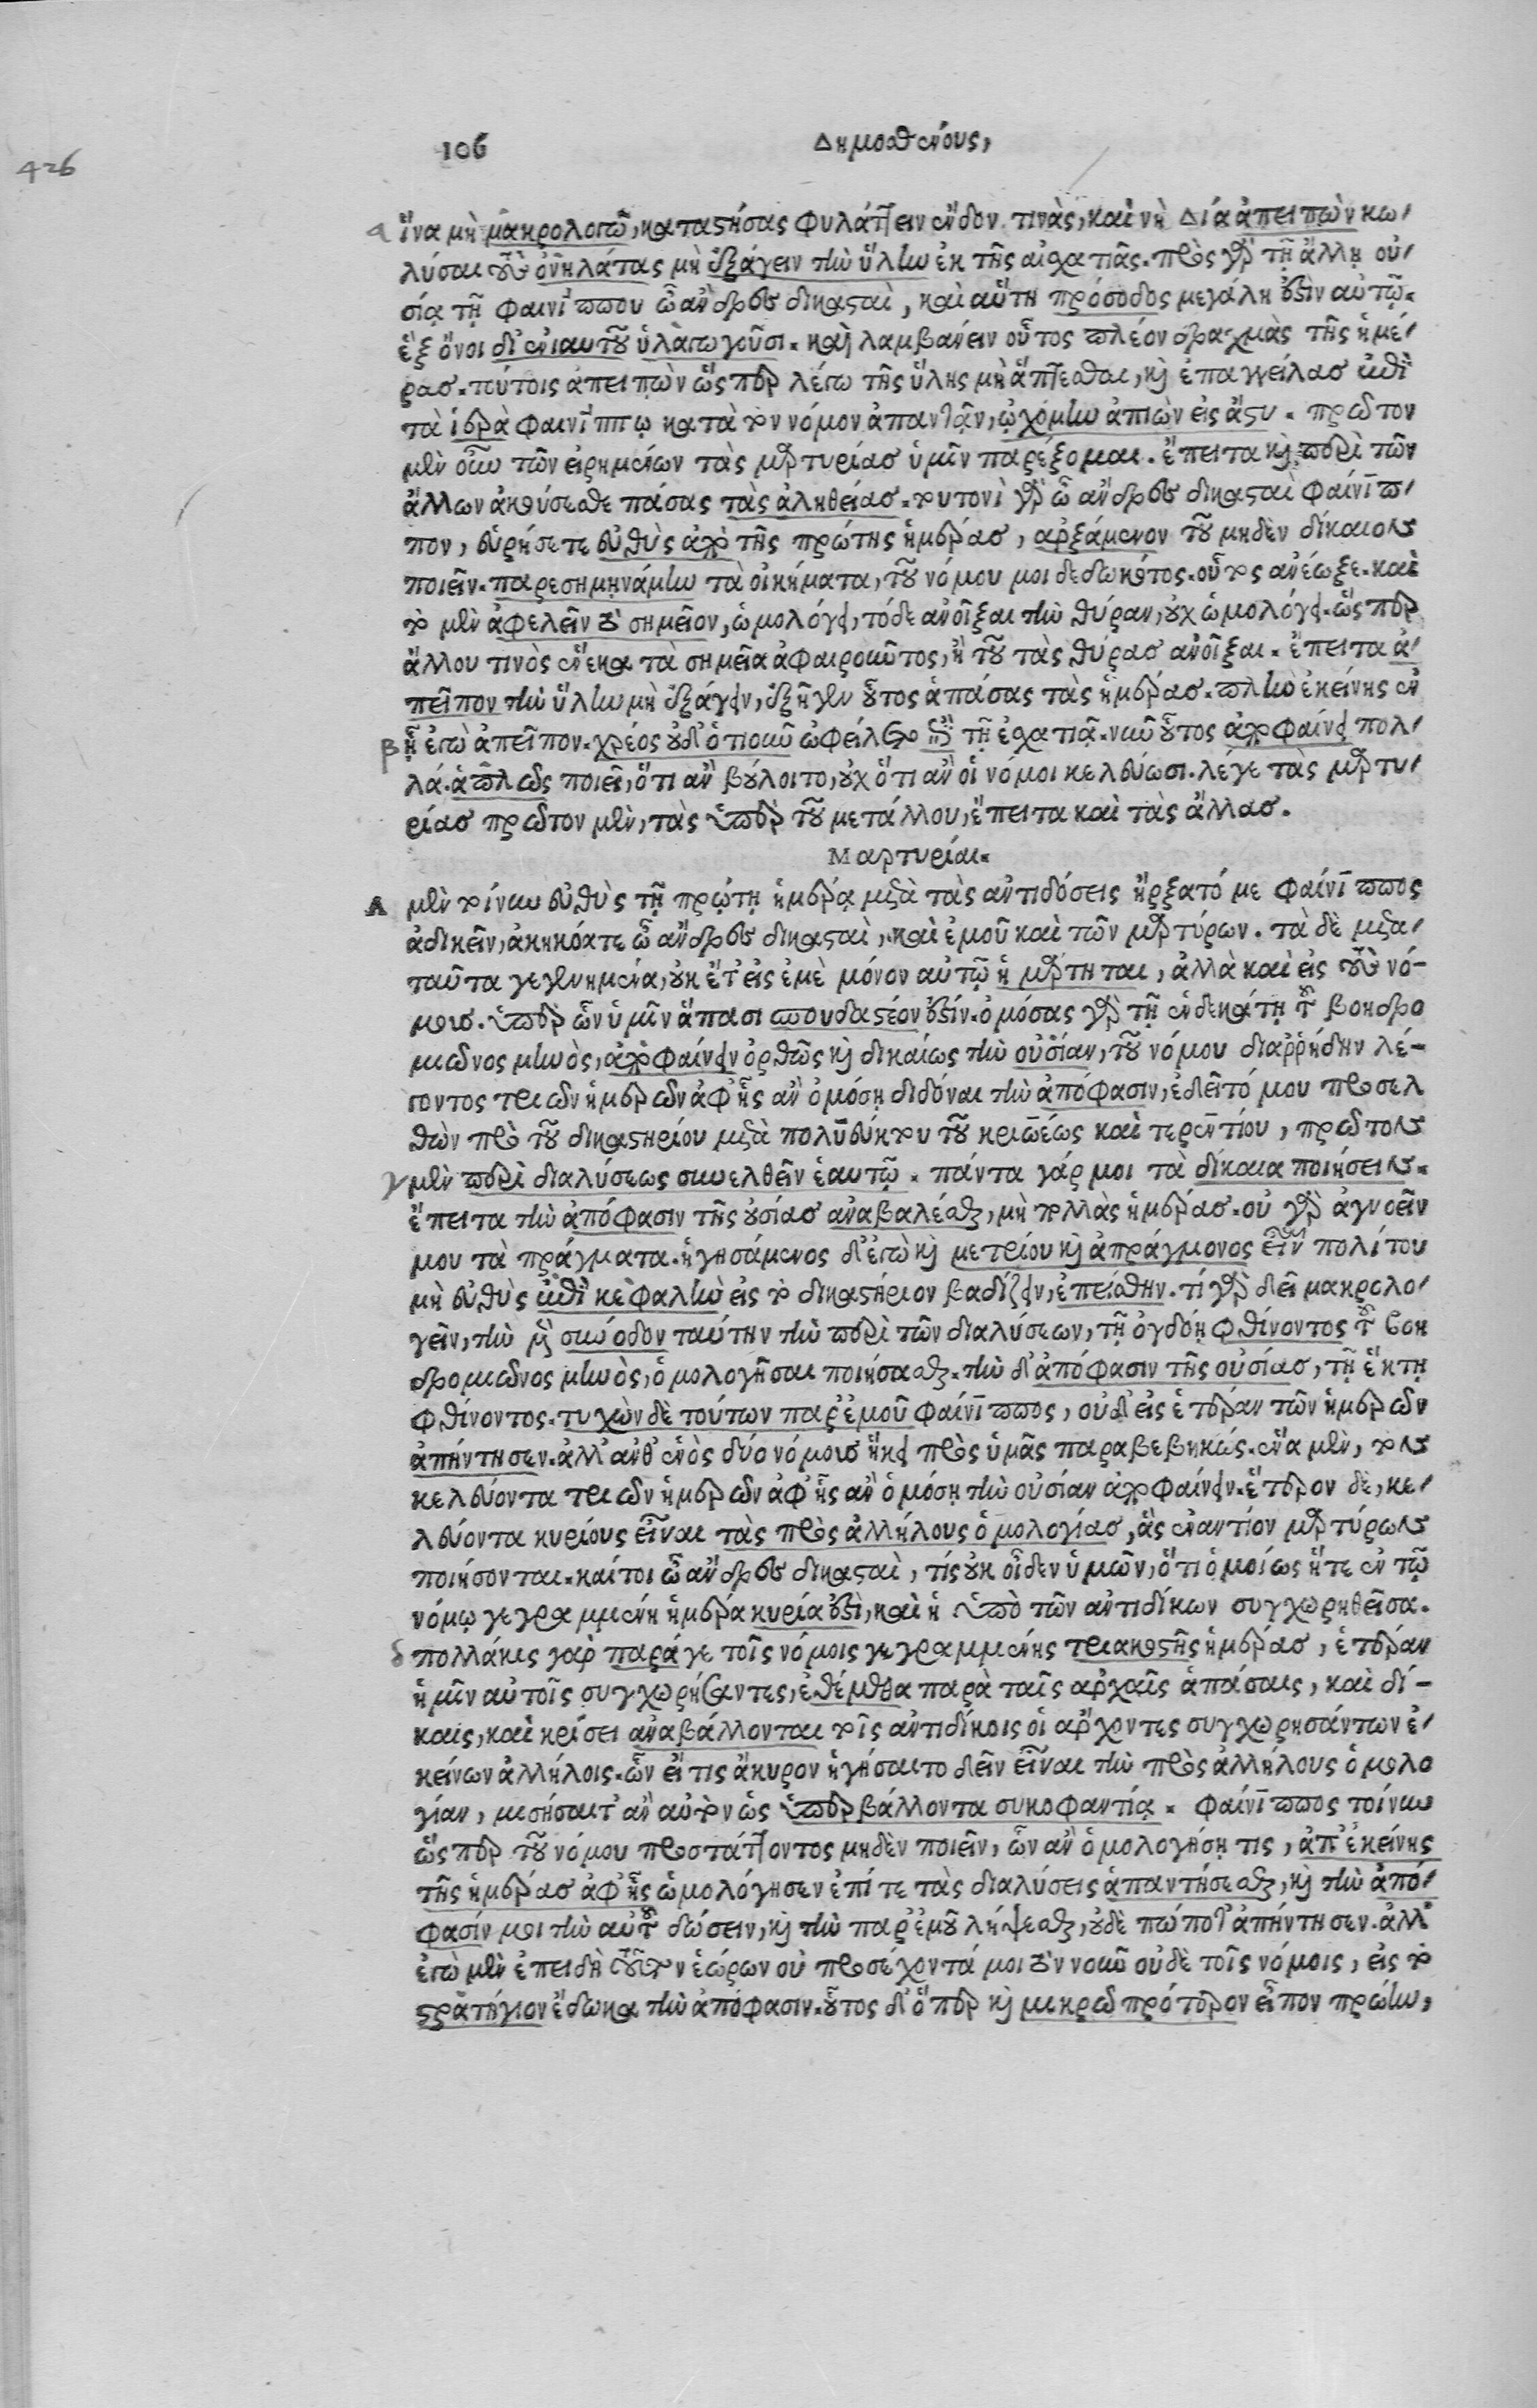 106 Δημοσθένους,
426
α ἵνα μὴ μακρολογῶ, καταστήσας φυλάττειν ἔνδον τινὰς, καὶ νὴ Δία ἀπειπὼν κω-
λύσαι τοὺς ὀνηλάτας μὴ ἐξάγειν τὴν ὕλην ἐκ τῆς αἰσχατιᾶς. πρὸς γὰρ τῇ ἄλλῃ οὐ-
σίᾳ τῇ φαινίππου ὦ ἄνδρες δικασταὶ, καὶ αὕτη πρόσοδος μεγάλη ἐστὶν αὐτῷ.
ἓξ ὄνοι δι' ἐνιαυτοῦ ὑλαγωγοῦσι. καὶ λαμβάνειν οὗτος πλέον δραχμὰς τῆς ἡμέ-
ρασ. τούτοις ἀπειπὼν ὥσπερ λέγω τῆς ὕλης μὴ ἅπτεσθαι, καὶ ἐπαγγείλασ ἐπὶ
τὰ ἱερὰ φαινίππῳ κατὰ τὸν νόμον ἀπαντᾶν, ᾠχόμην ἀπιὼν εἰς ἄστυ. πρῶτον
μὲν οὖν τῶν εἰρημένων τὰς μαρτυρίασ ὑμῖν παρέξομαι. ἔπειτα καὶ περὶ τῶν
ἄλλων ἀκούσεσθε πάσας τὰς ἀληθείασ. τουτονὶ γὰρ ὦ ἄνδρες δικασταὶ φαίνιπ-
πον, εὑρήσετε εὐθὺς ἀπὸ τῆς πρώτης ἡμέρασ, ἀρξάμενον τοῦ μηδὲν δίκαιον
ποιεῖν. παρεσημηνάμην τὰ οἰκήματα, τοῦ νόμου μοι δεδωκότος. οὗτος ἀνέωξε. καὶ
τὸ μὲν ἀφελεῖν τὸ σημεῖον, ὡμολόγει, τόδε ἀνοῖξαι τὴν θύραν, οὐχ ὡμολόγει. ὥσπερ
ἄλλου τινὸς ἕνεκα τὰ σημεῖα ἀφαιροῦντος, ἢ τοῦ τὰς θύρασ ἀνοῖξαι. ἔπειτα ἀ-
πεῖπον τὴν ὕλην μὴ ἐξάγειν, ἐξῆγεν οὗτος ἁπάσας τὰς ἡμέρασ. πλὴν ἐκείνης ἐν
β ᾗ ἐγὼ ἀπεῖπον. χρέος οὐδ' ὁτιοῦν ὠφείλετο ἐπὶ τῇ ἐσχατιᾷ. νῦν οὗτος ἀποφαίνει πολ-
λά. ἁπλῶς ποιεῖ, ὅτι ἂν βούλοιτο, οὐχ ὅτι ἂν οἱ νόμοι κελεύωσι. λέγε τὰς μαρτυ-
ρίασ πρῶτον μὲν, τὰς ὑπὲρ τοῦ μετάλλου, ἔπειτα καὶ τὰς ἄλλασ.
Μαρτυρίαι.
Α μὲν τοίνυν εὐθὺς τῇ πρώτῃ ἡμέρᾳ μετὰ τὰς ἀντιδόσεις ἤρξατό με φαίνιππος
ἀδικεῖν, ἀκηκόατε ὦ ἄνδρες δικασταὶ, καὶ ἐμοῦ καὶ τῶν μαρτύρων. τὰ δὲ μετα-
ταῦτα γεγενημένα, οὐκ ἔτ' εἰς ἐμὲ μόνον αὐτῷ ἡμάρτηται, ἀλλὰ καὶ εἰς τοὺς νό-
μους. ὑπὲρ ὧν ὑμῖν ἅπασι σπουδαστέον ἐστίν. ὀμόσας γὰρ τῇ ἑνδεκάτῃ τοῦ βοηδρο
μιῶνος μηνὸς, ἀποφαίνειν ὀρθῶς καὶ δικαίως τὴν οὐσίαν, τοῦ νόμου διαῤῥήδην λέ-
γοντος τριῶν ἡμερῶν ἀφ' ἧς ἂν ὀμόσῃ διδόναι τὴν ἀπόφασιν, ἐδεῖτό μου προσελ
θὼν πρὸ τοῦ δικαστηρίου μετὰ πολυεύκτου τοῦ κριωέως καὶ τερεντίου, πρῶτον
γ μὲν περὶ διαλύσεως συνελθεῖν ἑαυτῷ. πάντα γάρ μοι τὰ δίκαια ποιήσειν.
ἔπειτα τὴν ἀπόφασιν τῆς οὐσίασ ἀναβαλέσθαι, μὴ πολλὰς ἡμέρασ. οὐ γὰρ ἀγνοεῖν
μου τὰ πράγματα. ἡγησάμενος δ' ἐγὼ καὶ μετρίου καὶ ἀπράγμονος εἶναι πολίτου
μὴ εὐθὺς ἐπὶ κεφαλὴν εἰς τὸ δικαστήριον βαδίζειν, ἐπείσθην. τί γὰρ δεῖ μακρολο-
γεῖν, τὴν μὲν σύνοδον ταύτην τὴν περὶ τῶν διαλύσεων, τῇ ὀγδόῃ φθίνοντος τοῦ βοη
δρομιῶνος μηνὸς, ὁμολογῆσαι ποιήσασθαι. τὴν δ' ἀπόφασιν τῆς οὐσίασ, τῇ ἕκτῃ
φθίνοντος. τυχὼν δὲ τούτων παρ' ἐμοῦ φαίνιππος, οὐδ' εἰς ἑτέραν τῶν ἡμερῶν
ἀπήντησεν. ἀλλ' ἀνθ' ἑνὸς δύο νόμους ἥκει πρὸς ὑμᾶς παραβεβηκώς. ἕνα μὲν, τὸν
κελεύοντα τριῶν ἡμερῶν ἀφ' ἧς ἂν ὀμόσῃ τὴν οὐσίαν ἀποφαίνειν. ἕτερον δὲ, κε-
λεύοντα κυρίους εἶναι τὰς πρὸς ἀλλήλους ὁμολογίασ, ἃς ἐναντίον μαρτύρων
ποιήσονται. καίτοι ὦ ἄνδρες δικασταὶ, τίς οὐκ οἶδεν ὑμῶν, ὅτι ὁμοίως ἥτε ἐν τῷ
νόμῳ γεγραμμένη ἡμέρα κυρία ἐστὶ, καὶ ἡ ὑπὸ τῶν ἀντιδίκων συγχωρηθεῖσα.
δ πολλάκις γὰρ παράγε τοῖς νόμοις γεγραμμένης τριακοστῆς ἡμέρασ, ἑτέραν
ἡμῖν αὐτοῖς συγχωρήσαντες, ἐθέμεθα παρὰ ταῖς ἀρχαῖς ἁπάσαις, καὶ δί-
καις, καὶ κρίσει ἀναβάλλονται τοῖς ἀντιδίκοις οἱ ἄρχοντες συγχωρησάντων ἐ-
κείνων ἀλλήλοις. ὧν εἴ τις ἄκυρον ἡγήσαιτο δεῖν εἶναι τὴν πρὸς ἀλλήλους ὁμολο
γίαν, μισήσαιτ' ἂν αὐτὸν ὡς ὑπερβάλλοντα συκοφαντίᾳ. φαίνιππος τοίνυν
ὥσπερ τοῦ νόμου προστάττοντος μηδὲν ποιεῖν, ὧν ἂν ὁμολογήσῃ τις, ἀπ' ἐκείνης
τῆς ἡμέρασ ἀφ' ἧς ὡμολόγησεν ἐπί τε τὰς διαλύσεις ἀπαντήσεσθαι, καὶ τὴν ἀπό-
φασίν μοι τὴν αὑτοῦ δώσειν, καὶ τὴν παρ' ἐμοῦ λήψεσθαι, οὐδὲ πώποτ' ἀπήντησεν. ἀλλ'
ἐγὼ μὲν ἐπειδὴ τοῦτον ἑώρων οὐ προσέχοντά μοι τὸν νοῦν οὐδὲ τοῖς νόμοις, εἰς τὸ
στρατήγιον ἔδωκα τὴν ἀπόφασιν. οὗτος δ' ὅπερ καὶ μικρῷ πρότερον εἶπον πρώην,